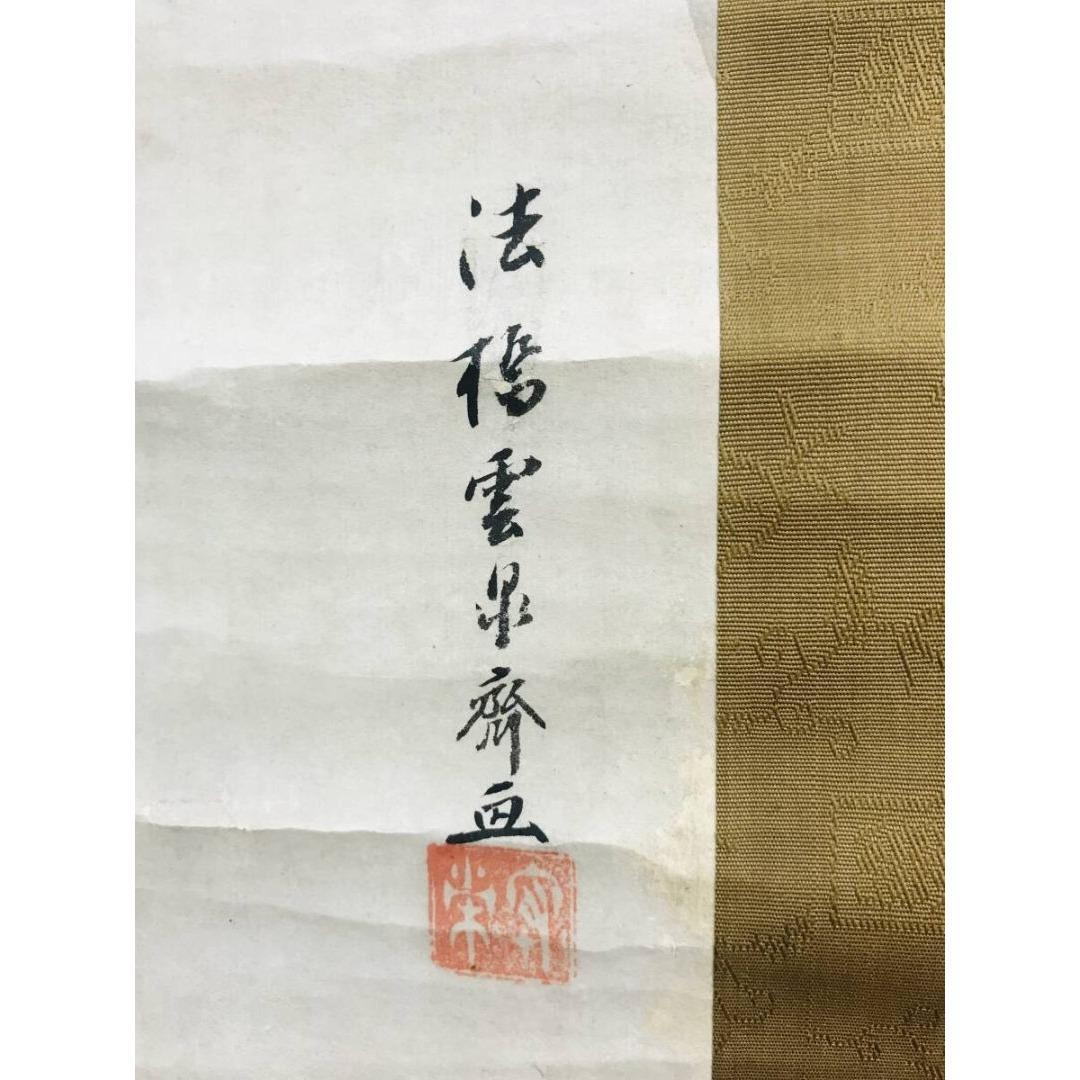 法橋雲泉齊画